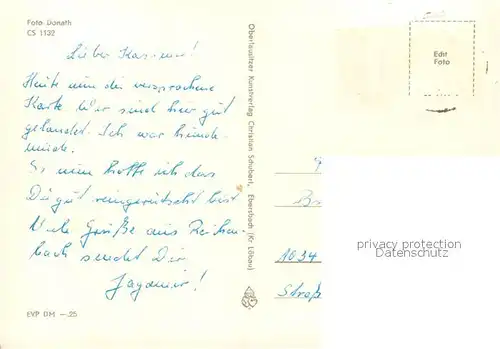 Foto Donath
CS 1132
Lieber
Heute nun die versprochene
Karte. Wir sind hier gut
gelandet. Ich war hunde-
müde.
So nun hoffe ich das
Du gut reingerutscht bist
Viele Grüße aus Reichen-
bach sendet Dir
EVP DM —.25
Oberlausitzer Kunstverlag Christian Schubert, Ebersbach (Kr. Löbau)
Edit
Foto
1034
Straß
privacy protection
Datenschutz AK